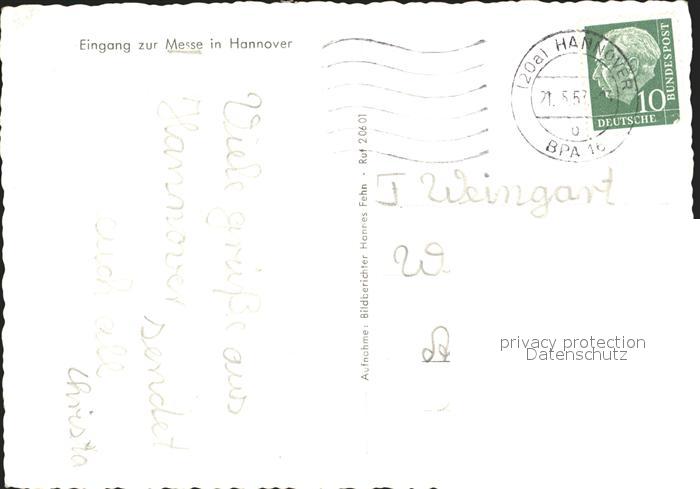 Eingang zur Messe in Hannover
(20a) HANNOVER
BPA 16
DEUTSCHE
BUNDESPOST
10
Aufnahme: Bildberichter Hannes Fehn · Ruf 20601
Viele grüße aus
Hannover sendet
euch all
Christa
J Weingart
W
privacy protection
Datenschutz